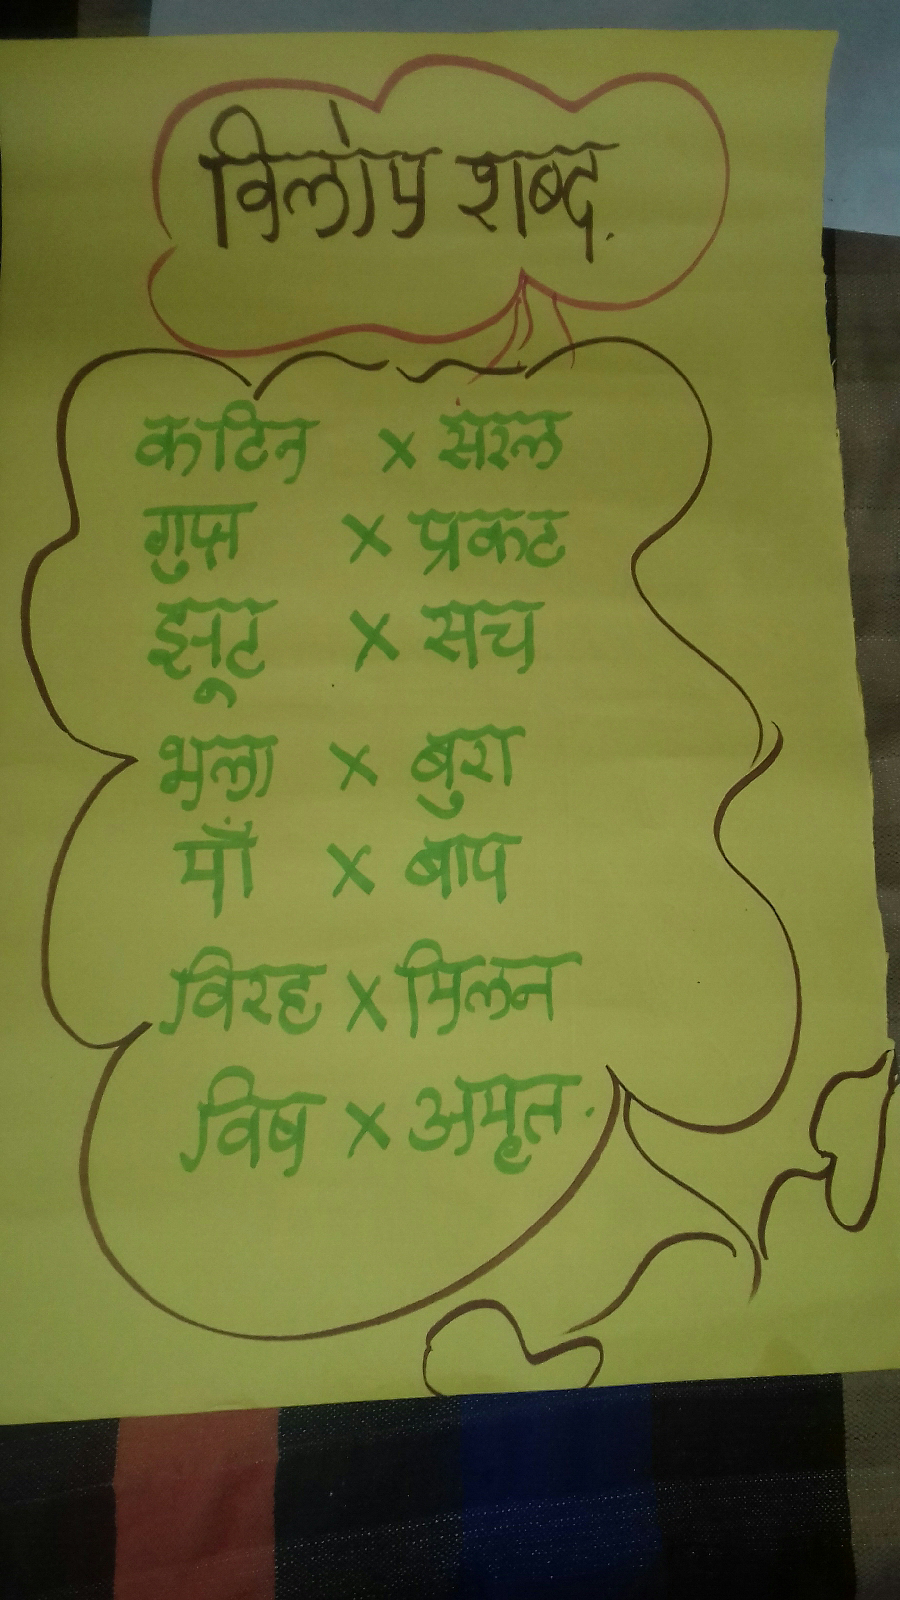 विलोप शब्द.
कटिन × सरल
गुप्त × प्रकट
झूट × सच
भला × बुरा
माँ × बाप
विरह × मिलन
विष × अमृत.